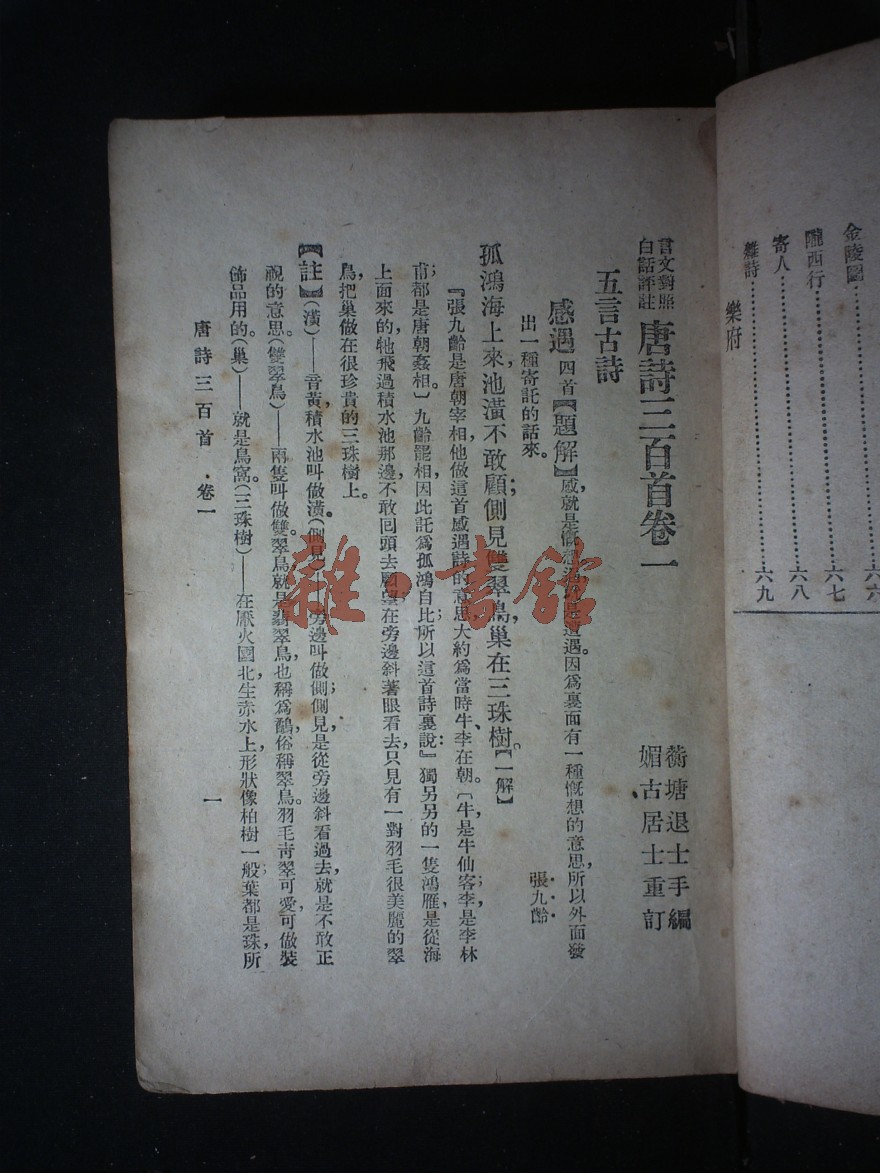 金陵圖……………………六六
隴西行……………………六七
寄人………………………六八
雜詩………………………六九
樂府
言文對照
白話評註
唐詩三百首卷一
蘅塘退士手編
媚古居士重訂
五言古詩
感遇 四首【題解】感就是慨想遇就是遭遇。因爲裏面有一種慨想的意思，所以外面發
出一種寄託的話來。
張九齡
孤鴻海上來，池潢不敢顧；側見雙翠鳥，巢在三珠樹。【一解】
『張九齡是唐朝宰相，他做這首感遇詩的意思，大約爲當時牛、李在朝。〔牛是牛仙客；李是李林
甫；都是唐朝姦相。〕九齡罷相，因此託爲孤鴻自比所以這首詩裏說：』獨另另的一隻鴻雁，是從海
上面來的，牠飛過積水池那邊，不敢回頭去顧望，在旁邊斜著眼看去，只見有一對羽毛很美麗的翠
鳥，把巢做在很珍貴的三珠樹上。
【註】（潢）——音黃，積水池叫做潢。（側見）——旁邊叫做側；側見是從旁邊斜看過去，就是不敢正
視的意思。（雙翠鳥）——兩隻叫做雙。翠鳥就是翡翠鳥，也稱爲鷸，俗稱翠鳥。羽毛靑翠可愛，可做裝
飾品用的。（巢）——就是鳥窩。（三珠樹）——在厭火國北，生赤水上，形狀像柏樹一般；葉都是珠，所
唐詩三百首 卷一
一
雜·書館